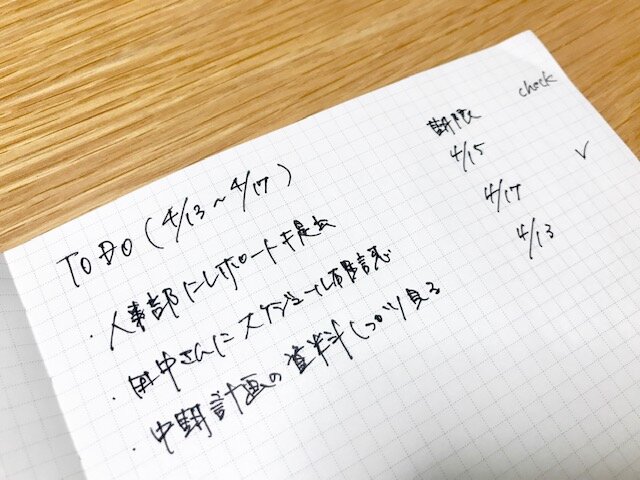 TODO (4/13～4/17) 期限 check
・人事部にレポート提出 4/15
・田中さんにスケジュール確認 4/17 ✓
・中期計画の資料 見る 4/13